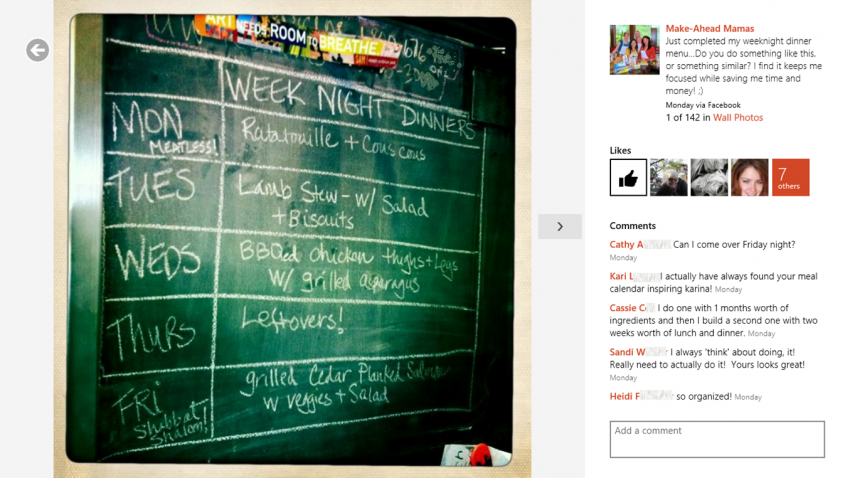 ART NEEDS ROOM TO BREATHE
SAM
WEEK NIGHT DINNERS
MON
MEATLESS!
Ratatouille + Cous cous
TUES
Lamb Stew - w/ Salad
+ Biscuits
WEDS
BBQed chicken thighs + Legs
w/ grilled asparagus
THURS
Leftovers!
FRI
Shabbat
Shalom!
grilled Cedar Planked Salmon
w veggies + Salad
Make-Ahead Mamas
Just completed my weeknight dinner
menu...Do you do something like this,
or something similar? I find it keeps me
focused while saving me time and
money! ;)
Monday via Facebook
1 of 142 in Wall Photos
Likes
7
others
Comments
Cathy A Can I come over Friday night?
Monday
Kari L I actually have always found your meal
calendar inspiring karina! Monday
Cassie C I do one with 1 months worth of
ingredients and then I build a second one with two
weeks worth of lunch and dinner. Monday
Sandi W I always 'think' about doing, it!
Really need to actually do it! Yours looks great!
Monday
Heidi F so organized! Monday
Add a comment